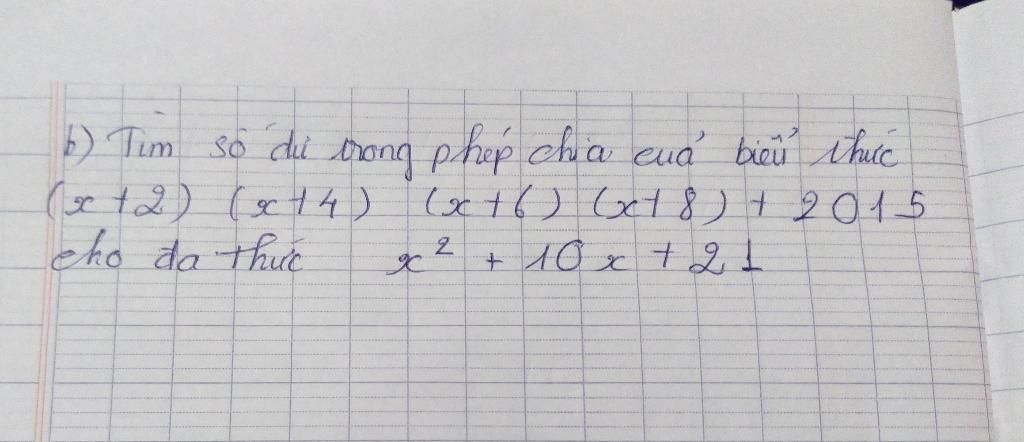 b) Tìm số dư trong phép chia cuả biểu thức
(x+2) (x+4) (x+6) (x+8) + 2015
cho đa thức x² + 10x + 21